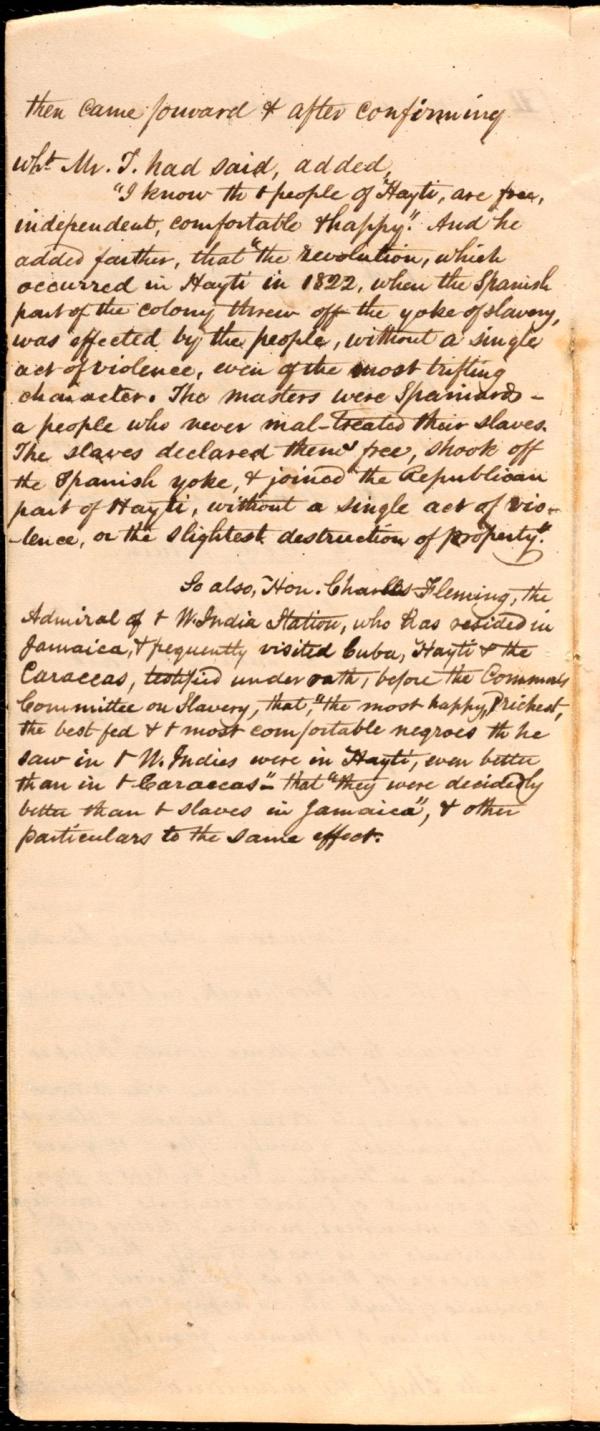 then came forward & after confirming
wht Mr. T. had said, added,
"I know th t people of Hayti, are free,
independent, comfortable & happy." And he
added farther, that "the revolution, which
occurred in Hayti in 1822, when the Spanish
part of the colony threw off the yoke of slavery,
was effected by the people, without a single
act of violence, even of the most trifling
character. The masters were Spaniards -
a people who never mal-treated their slaves.
The slaves declared themss free, shook off
the Spanish yoke, & joined the Republican
part of Hayti, without a single act of vio-
-lence, or the slightest destruction of property."
So also, Hon. Charles Fleming, the
Admiral of t W. India Station, who has resided in
Jamaica, & frequently visited Cuba, Hayti & the
Caraccas, testified under oath, before the Commons
Committee on Slavery, that, "the most happy, richest,
the best fed & t most comfortable negroes th he
saw in t W. Indies were in Hayti, even better
than in t Caraccas" - that "they were decidedly
better than t slaves in Jamaica", & other
particulars to the same effect.